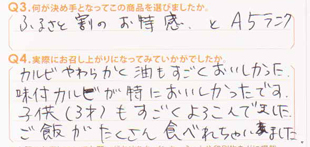 Q3.何が決め手となってこの商品を選びましたか。
ふるさと割のお特感。とA5ランク
Q4.実際にお召し上がりになってみていかがでしたか。
カルビやわらかく油もすごくおいしかった。
味付カルビが特においしかったです。
子供(3才)もすごくよろこんでました。
ご飯がたくさん食べれちゃいました